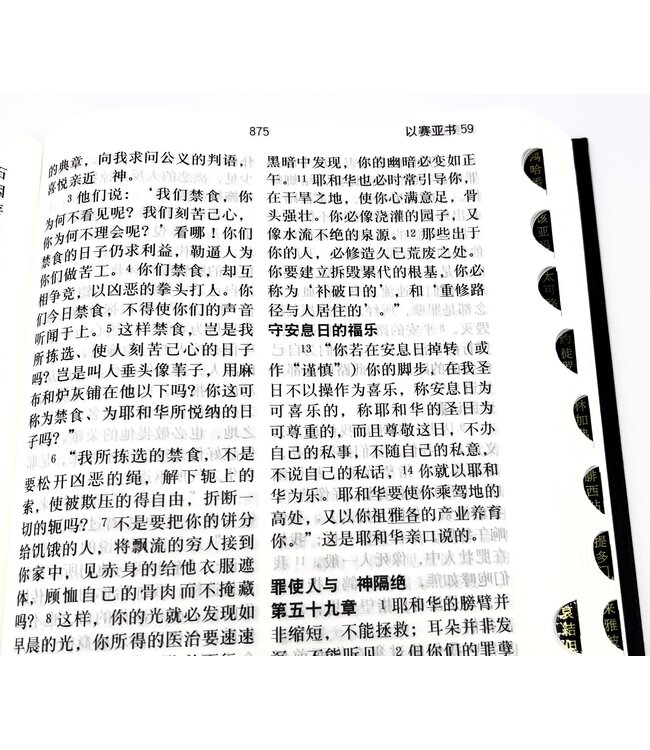 875
以赛亚书 59
的典章，向我求问公义的判语，
喜悦亲近　神。
3 他们说：‘我们禁食，你
为何不看见呢？我们刻苦己心，
你为何不理会呢？’看哪！你们
禁食的日子仍求利益，勒逼人为
你们做苦工。4 你们禁食，却互
相争竞，以凶恶的拳头打人。你
们今日禁食，不得使你们的声音
听闻于上。5 这样禁食，岂是我
所拣选、使人刻苦己心的日子
吗？岂是叫人垂头像苇子，用麻
布和炉灰铺在他以下吗？你这可
称为禁食、为耶和华所悦纳的日
子吗？”
6 “我所拣选的禁食，不是
要松开凶恶的绳，解下轭上的
索，使被欺压的得自由，折断一
切的轭吗？7 不是要把你的饼分
给饥饿的人，将飘流的穷人接到
你家中，见赤身的给他衣服遮
体，顾恤自己的骨肉而不掩藏
吗？8 这样，你的光就必发现如
早晨的光，你所得的医治要速速
黑暗中发现，你的幽暗必变如正
午。11 耶和华也必时常引导你，
在干旱之地，使你心满意足，骨
头强壮。你必像浇灌的园子，又
像水流不绝的泉源。12 那些出于
你的人，必修造久已荒废之处。
你要建立拆毁累代的根基，你必
称为‘补破口的’，和‘重修路
径与人居住的’。”
守安息日的福乐
13 “你若在安息日掉转（或
作“谨慎”）你的脚步，在我圣
日不以操作为喜乐，称安息日为
可喜乐的，称耶和华的圣日为
可尊重的，而且尊敬这日，不办
自己的私事，不随自己的私意，
不说自己的私话，14 你就以耶和
华为乐。耶和华要使你乘驾地的
高处，又以你祖雅各的产业养育
你。”这是耶和华亲口说的。
罪使人与　神隔绝
第五十九章 1 耶和华的膀臂并
非缩短，不能拯救；耳朵并非发
沉，不能听见。2 但你们的罪孽
鸿哈番
该亚玛
太可路
约徒罗
林加
腓西帖
提多门
来雅彼